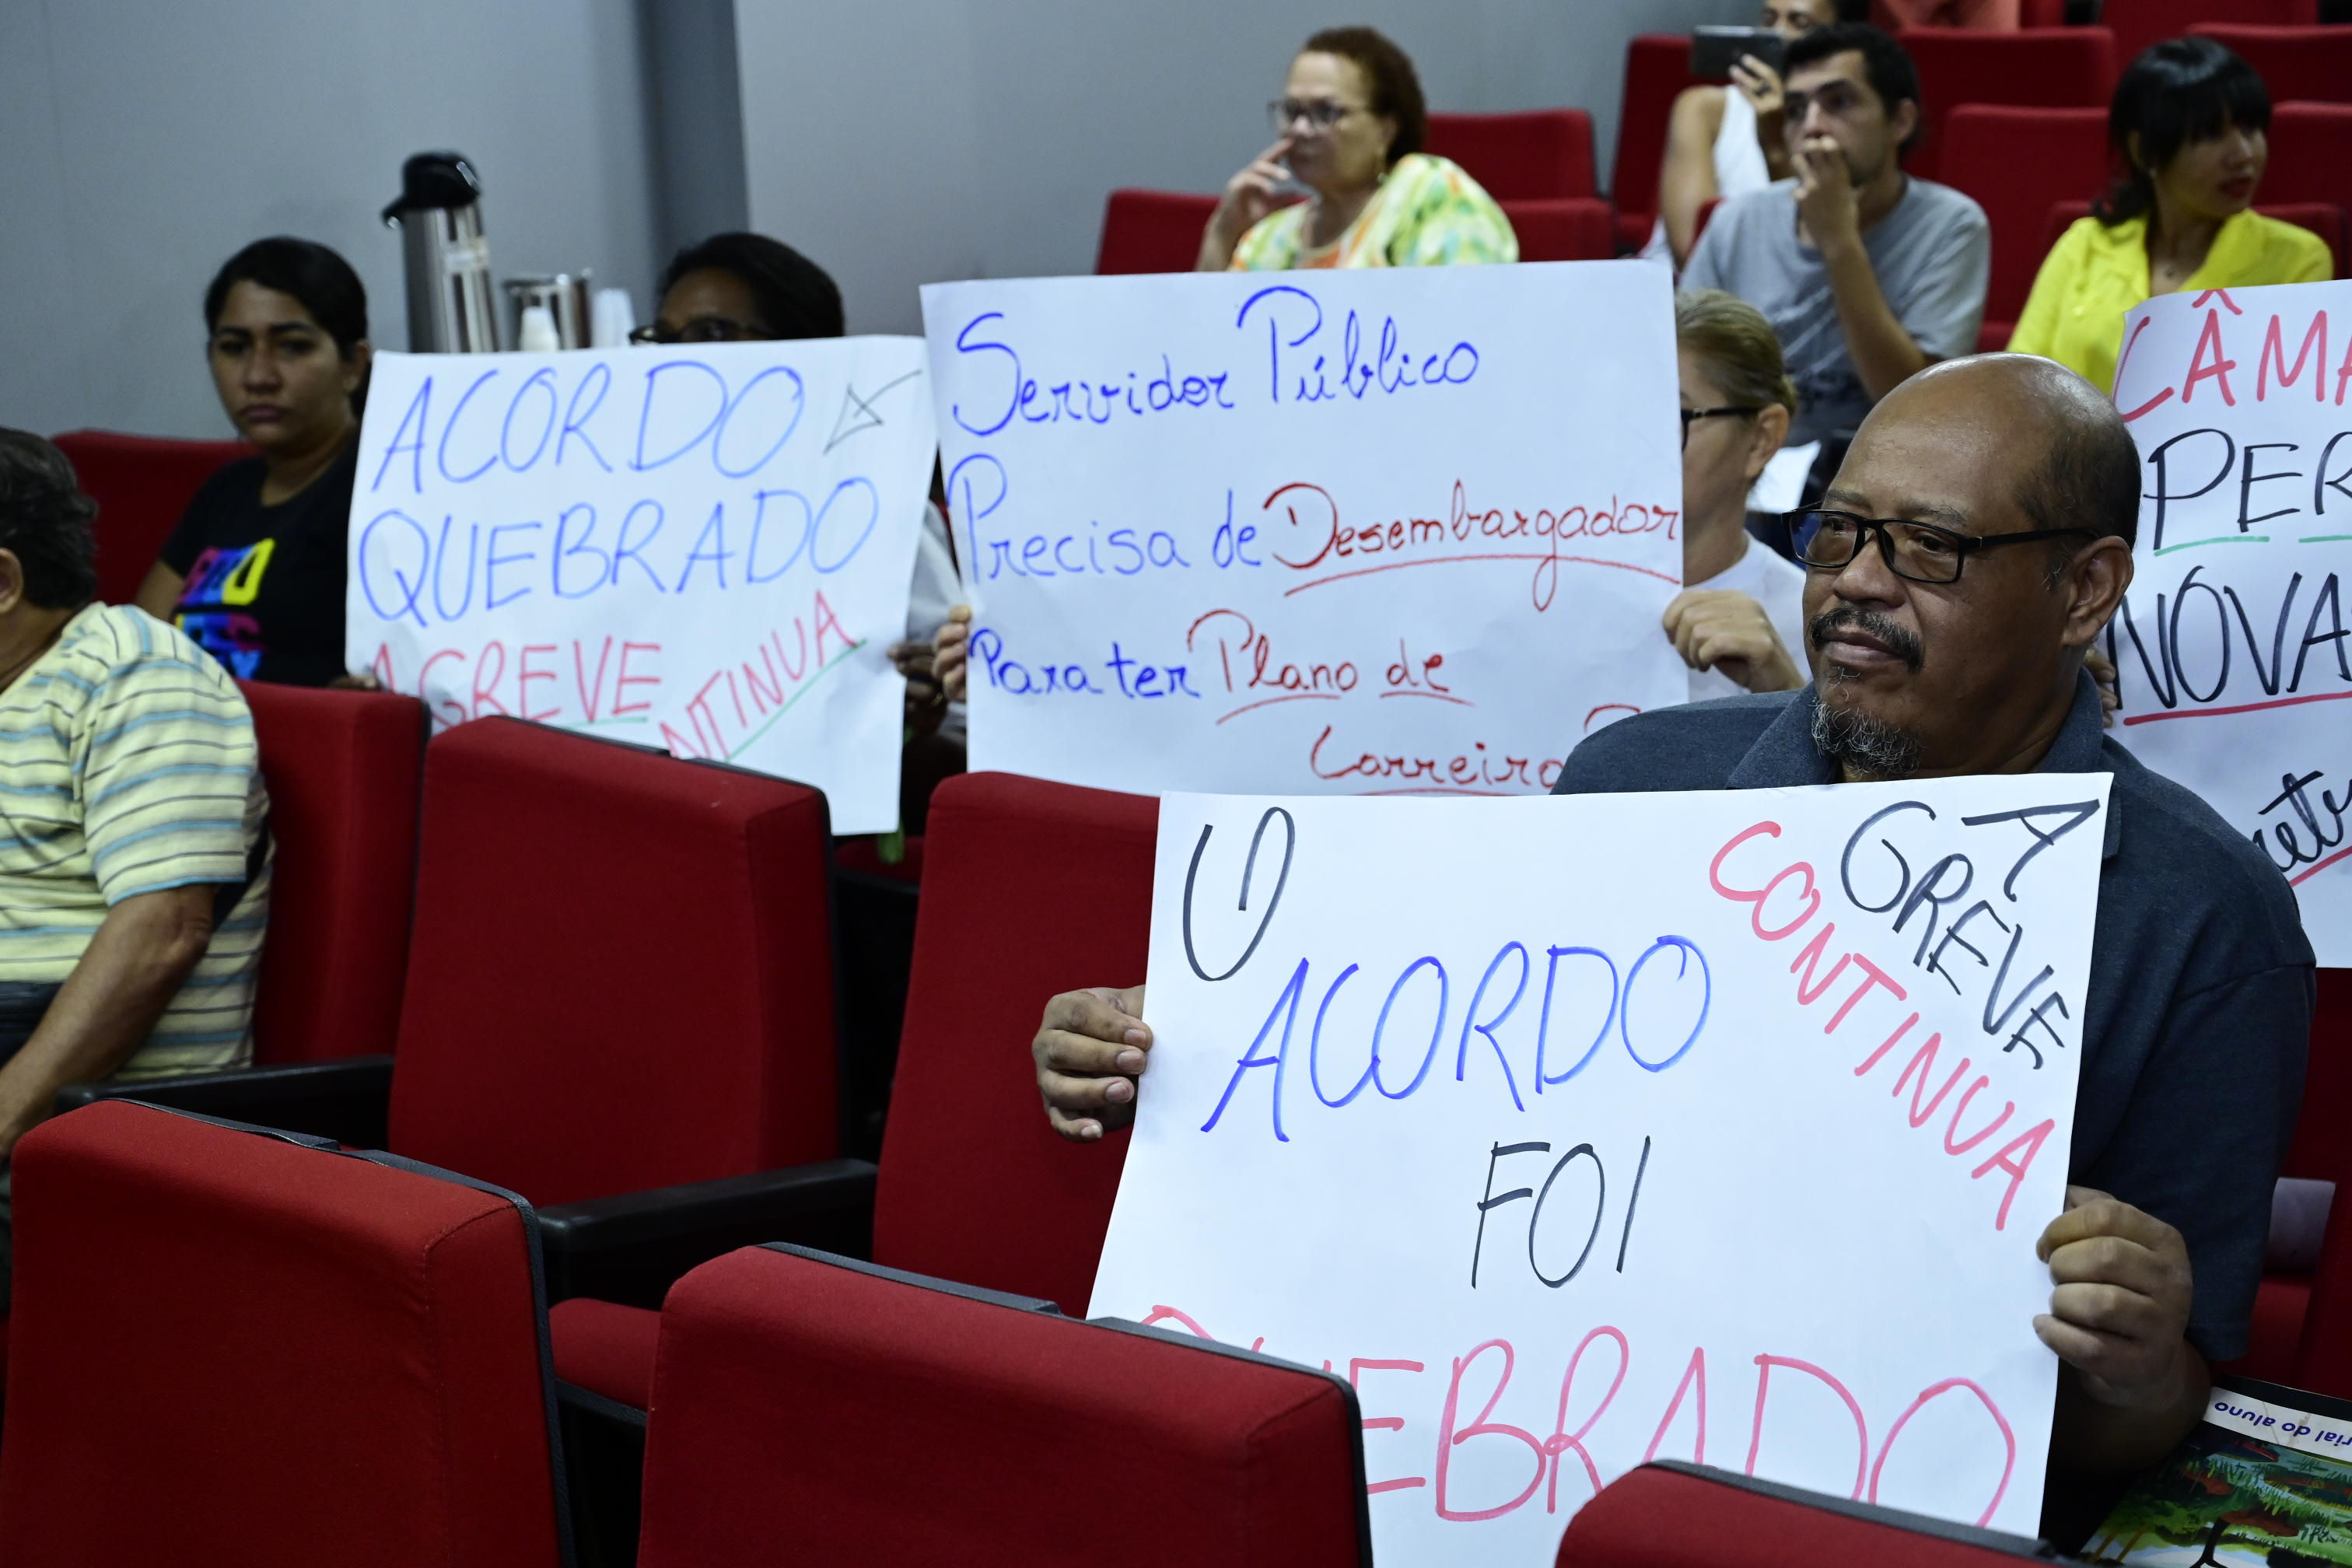 ACORDO
QUEBRADO
A GREVE
NTINUA
Servidor Público
Precisa de Desembargador
Para ter Plano de
Carreira
CÂMA
PER
NOVA
retr
O
ACORDO
FOI
QUEBRADO
A
GREVE
CONTINUA
rial do aluno